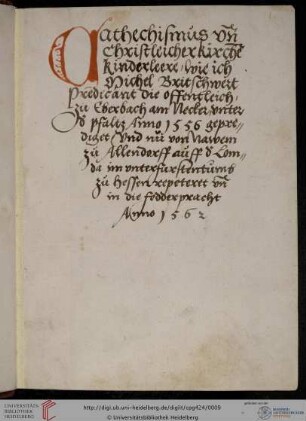 Cathechismus vn̄
Christleicher kirchē
kinderleere, wie ich
Michel Britschwert
Predicant die offentleich,
zu Eberbach am Necker, vnter
d pfaltz Anno 1556 gepre⸗
diget, Vnd nu von Nawem
zu Allendorff auff d Lom⸗
da im vnterfurstentumb
zu Hessen repeteret vn̄
in die fodder pracht
Anno 1562
UNIVERSITÄTS-
BIBLIOTHEK
HEIDELBERG
http://digi.ub.uni-heidelberg.de/diglit/cpg424/0009
© Universitätsbibliothek Heidelberg